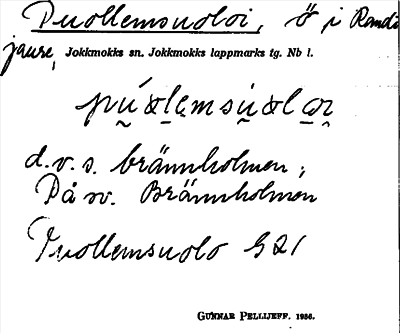 Puollemsuoloi, ö i Randi
jaure, Jokkmokks sn. Jokkmokks lappmarks tg. Nb l.
d.v.s. brännholmen;
På sv. Brännholmen
Puollemsuolo G21
GUNNAR PELLIJEFF. 1956.